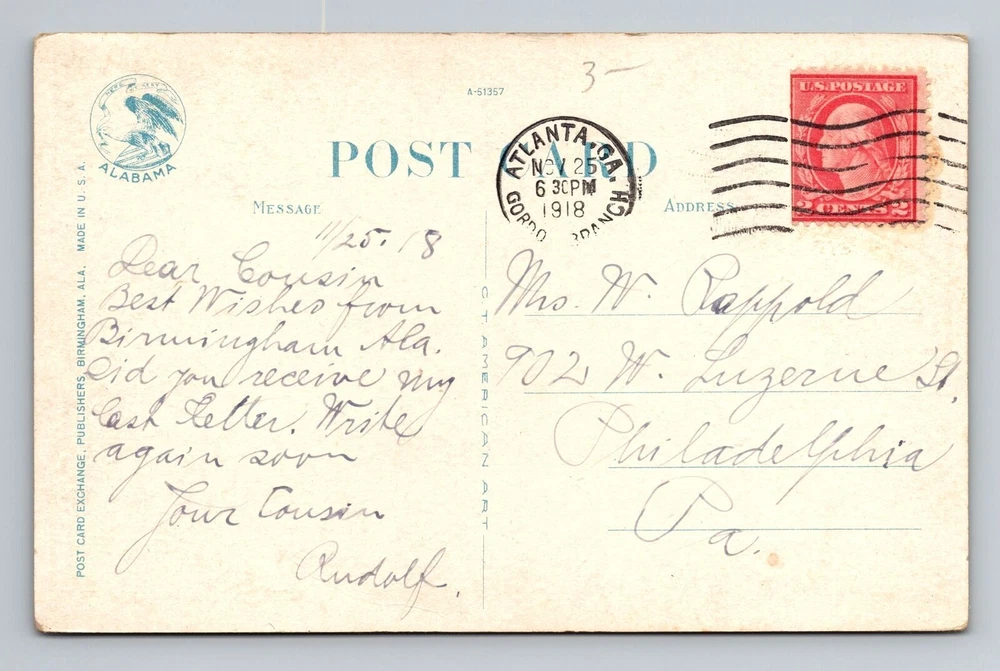 3-
A-51357
U.S. POSTAGE
2 CENTS 2
ALABAMA
POST CARD
ATLANTA, GA.
NOV 25
6 30PM
1918
GORDO BRANCH
MESSAGE
ADDRESS
11/25. 18
Dear Cousin
Best Wishes from
Birmingham Ala.
Did you receive my
last Letter. Write
again soon
Your Cousin
Rudolf.
Mrs. W. Rappold
902 W. Luzerne St.
Philadelphia
Pa.
POST CARD EXCHANGE, PUBLISHERS, BIRMINGHAM, ALA. MADE IN U.S.A.
C. T. AMERICAN ART